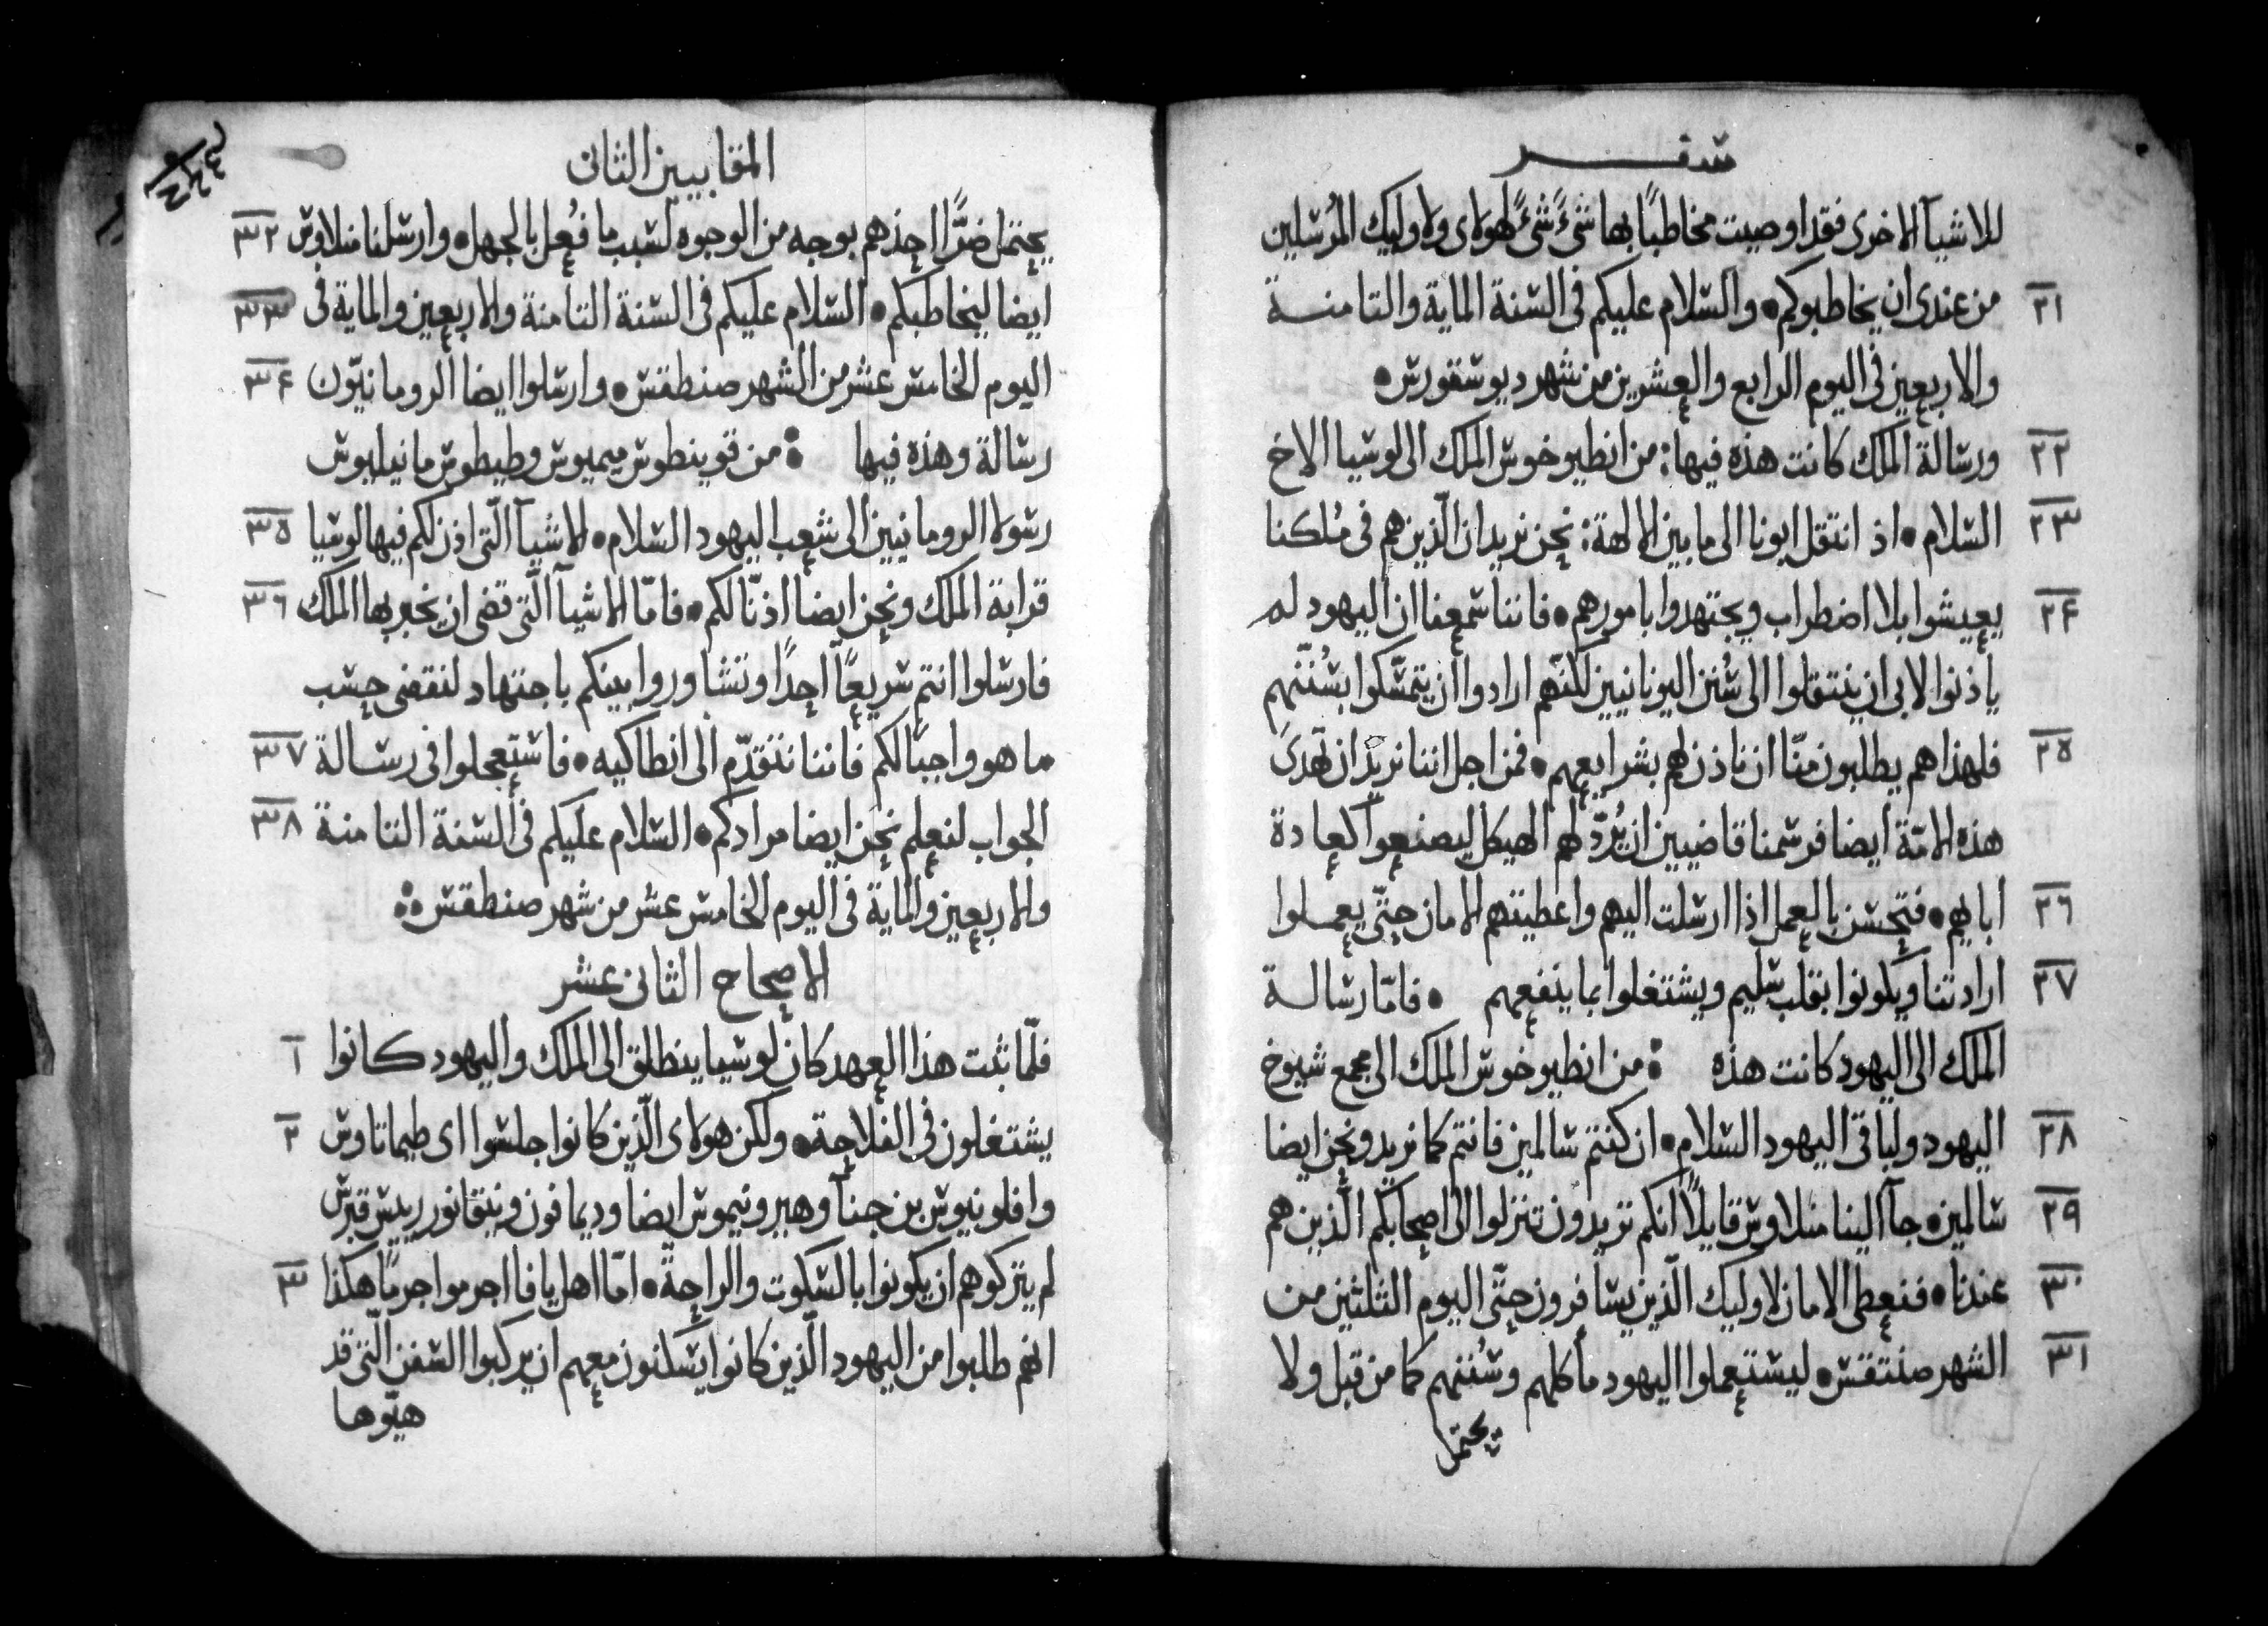 سفر
للاشيآ الاخرى فقد اوصيت مخاطبًا بها شىءً شىءً لهولاى ولاوليك المُرسلين
٢١ من عندى ان يخاطبوكم • والسلام عليكم فى السنة الماية والثامنة
والاربعين فى اليوم الرابع والعشرين من شهر ديوسقورس •
٢٢ ورسالة الملك كانت هذه فيها : من انطيوخوس الملك الى لوسيا الاخ
٢٣ السلام • اذ انتقل ابونا الى ما بين الالهة : نحن نريد ان الّذين هم فى مُلكنا
٢۴ يعيشوا بلا اضطراب ويجتهدوا بامورهم • فاننا سمعنا ان اليهود لم
ياذنوا لابى ان ينتقلوا الى سُنن اليونانيين لكنّهم ارادوا ان يتمسّكوا بسُنّتهم
٢٥ فلهذا هم يطلبون منّا ان ناذن لهم بشرايعهم • فمن اجل اننا نريد ان تهدى
هذه الامّة ايضا فرسمنا قاضيين ان يُردّ لهم الهيكل ليصنعوا كعادة
٢٦ ابايهم • فتحسن بالعمل اذا ارسلت اليهم واعطيتهم الامان حتّى يعملوا
٢٧ ارادتنا ويكونوا بقلب سليم ويشتغلوا بما ينفعهم • فامّا رسالة
الملك الى اليهود كانت هذه : من انطيوخوس الملك الى مجمع شيوخ
٢٨ اليهود ولباقى اليهود السلام • ان كنتم سالمين فانتم كما نريد ونحن ايضا
٢٩ سالمين • جآ الينا منلاوس قايلاً انكم تريدون تنزلوا الى اصحابكم الّذين هم
٣٠ عندنا • فنعطى الامان لاوليك الّذين يسافرون حتّى اليوم الثلثين من
٣١ الشهر صنتقس • ليستعملوا اليهود مأكلهم وسُننهم كما من قبل ولا
يحتمل
المقابيين الثانى
يحتمل ضرًّا احدهم بوجه من الوجوه لسبب ما فُعل بالجهل • وارسلنا منلاوس ٣٢
ايضا ليخاطبكم • السلام عليكم فى السنة الثامنة والاربعين والماية فى ٣٣
اليوم الخامس عشر من الشهر صنطقس • وارسلوا ايضا الرومانيّون ٣۴
رسالة وهذه فيها : من قوينطوس ميميوس وطيطوس مانيليوس
رسولا الرومانيين الى شعب اليهود السلام • الاشيآ الّتى اذن لكم فيها لوسيا ٣٥
قرابة الملك ونحن ايضا اذنّا لكم • فامّا الاشيآ الّتى قضى ان يخبر بها الملك ٣٦
فارسلوا انتم سريعًا احدًا وتشاوروا بينكم باجتهاد لنقضى حسب
ما هو واجبًا لكم فاننا نتقدّم الى انطاكيه • فاستعجلوا فى رسالة ٣٧
الجواب لنعلم نحن ايضا مرادكم • السلام عليكم فى السنة الثامنة ٣٨
والاربعين والماية فى اليوم الخامس عشر من شهر صنطقس
الاصحاح الثانى عشر
فلمّا ثبت هذا العهد كان لوسيا ينطلق الى الملك واليهود كانوا ١
يشتغلون فى الفلاحة • ولكن هولاى الّذين كانوا جلسوا اى طيماتاوس ٢
وافلونيوس بن جنآ وهيرونيموس ايضا وديمافون ونيقانور رييس قبرس
لم يتركوهم ان يكونوا بالسكوت والراحة • امّا اهل يافا اجرموا جرمًا هكذا ٣
انهم طلبوا من اليهود الّذين كانوا يسكنون معهم ان يركبوا السفن الّتى قد
هيّوها